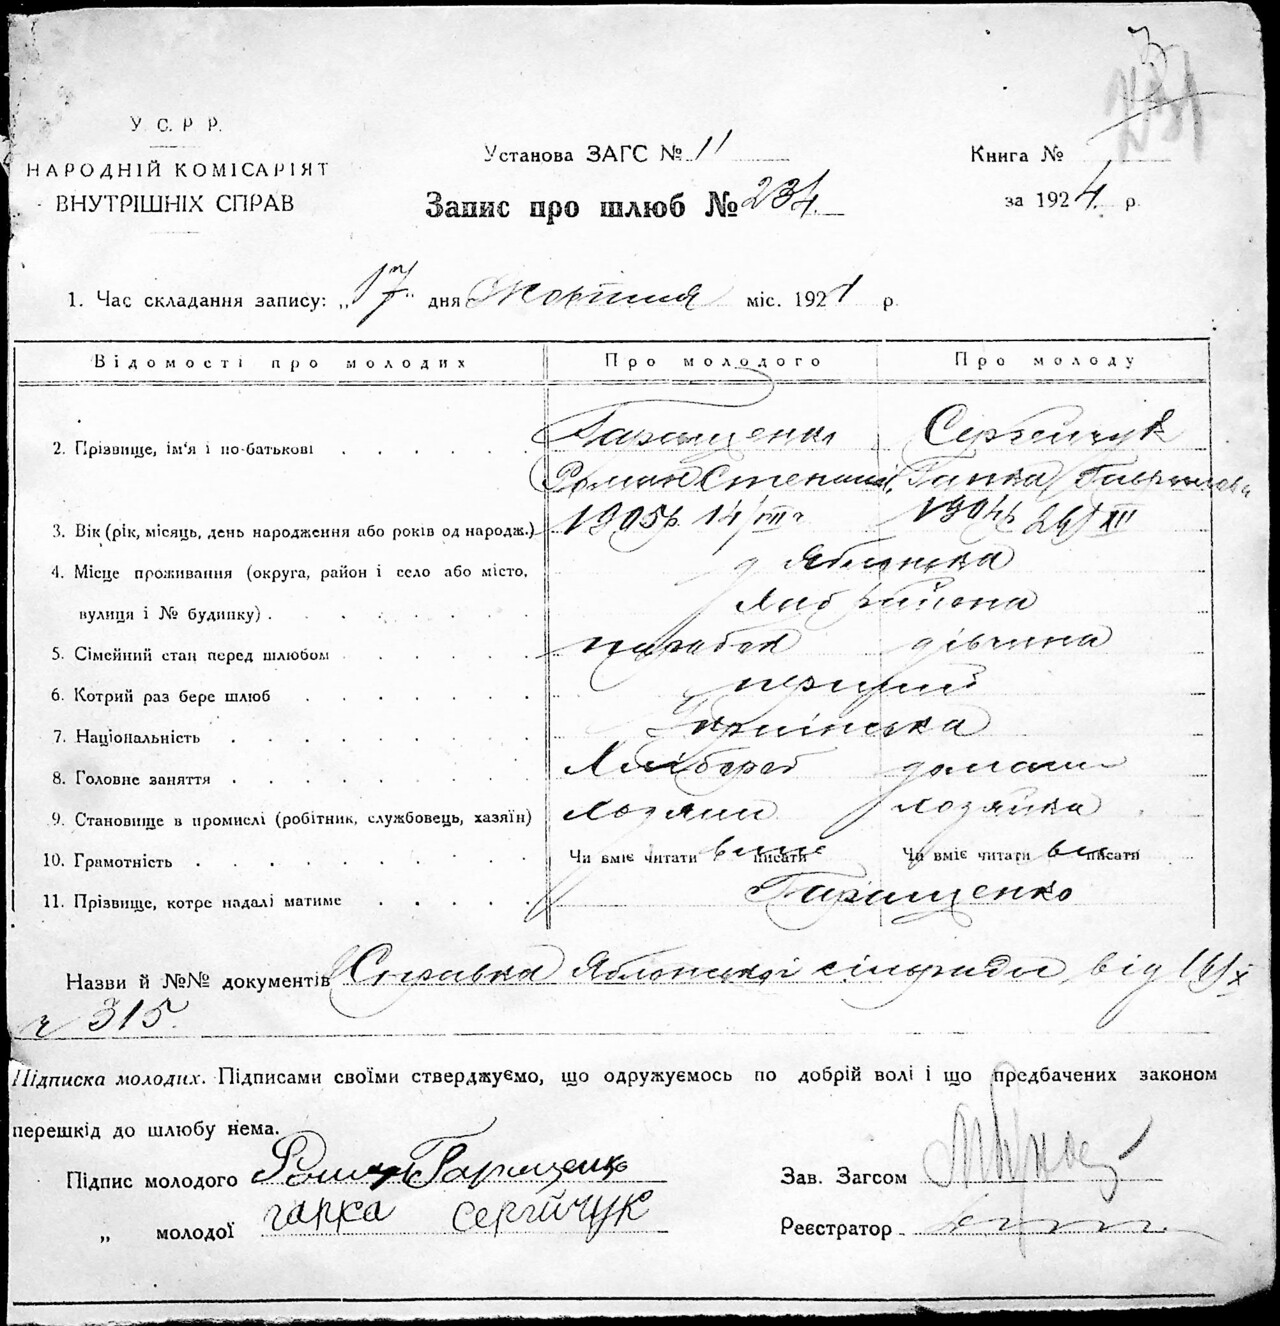 231
У. С. Р. Р.
НАРОДНІЙ КОМІСАРІЯТ
ВНУТРІШНІХ СПРАВ
Установа ЗАГС № 11
Запис про шлюб № 234
Книга №
за 1924 р.
1. Час складання запису: „17" дня Жовтня міс. 1924 р.
Відомості про молодих Про молодого Про молоду
2. Прізвище, ім'я і по-батькові Гаращенко Сергейчук
Роман Степанов. Ганка Гаврилова
3. Вік (рік, місяць, день народження або років од народж.) 1905р 14/VIII 1904р 24/XII
4. Місце проживання (округа, район і село або місто, Яблонька
вулиця і № будинку) района
5. Сімейний стан перед шлюбом парубок дівчина
6. Котрий раз бере шлюб перший
7. Національність Українська
8. Головне заняття Хлібороб домашн
9. Становище в промислі (робітник, службовець, хазяїн) Хозяин Хозяйка
10. Грамотність Чи вміє читати вміє писати Чи вміє читати вм писати
11. Прізвище, котре надалі матиме Гаращенко
Назви й №№ документів Справка Яблонської сільради від 16/X
ч 315.
Підписка молодих. Підписами своїми стверджуємо, що одружуємось по добрій волі і що предбачених законом
перешкід до шлюбу нема.
Підпис молодого Роман Гаращенко
Зав. Загсом
„ молодої ганка сергійчук
Реєстратор